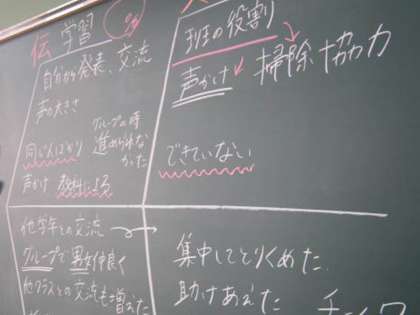 伝 学習
自分から発表、交流
声の大きさ
グループの時
進められな
かった
声かけ 教科による
班の役割
声かけ
掃除協力
できていない
他学年との交流
グループで男女仲良く
他クラスとの交流も増えた
集中してとりくめた
助けあえた